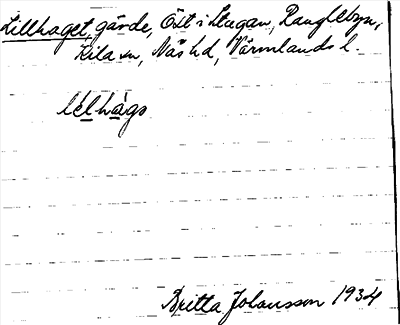 Lillhaget, gärde, Öst i Stugan, Ranglebyn,
Kila sn, Näs hd, Värmlands l.
lélhàgs
Britta Johansson 1934